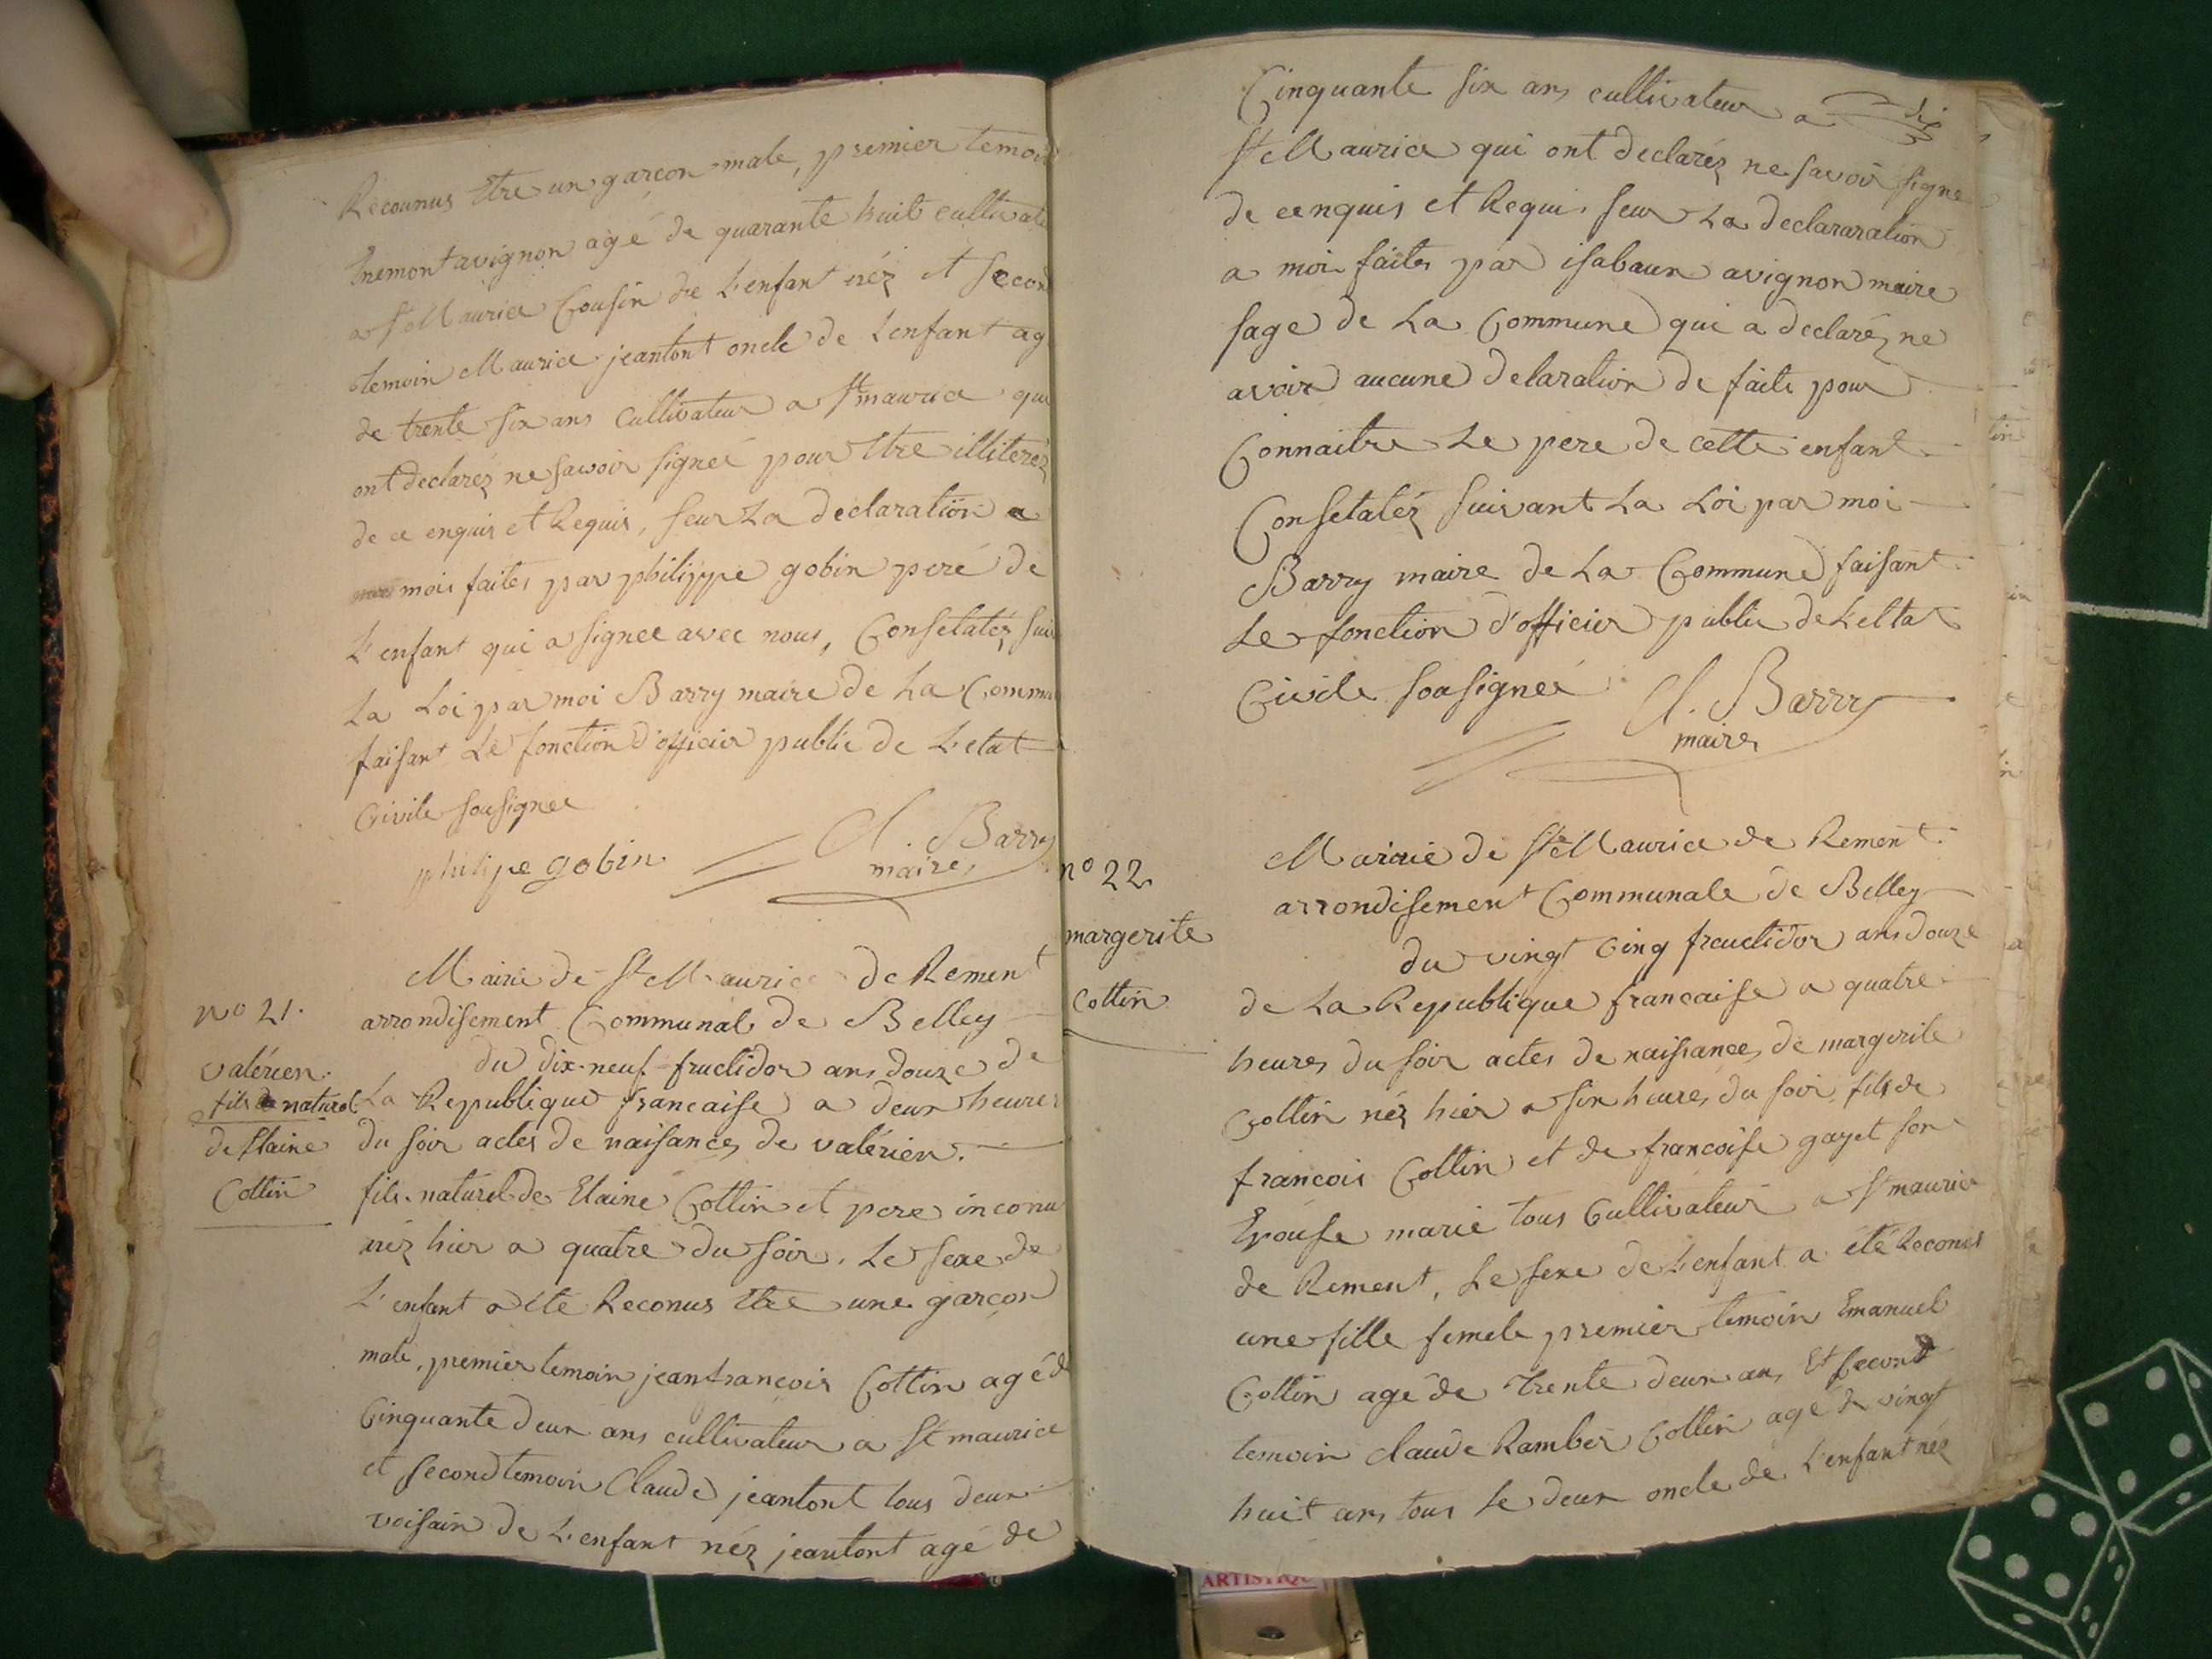 Recounus Etre un garcon male, premier temoi
Enemont avignon agé de quarante huit cultivate
a St Maurice Cousin de L'enfant néz et Secon
temoin Maurice jeantont oncle de L'enfant ag
de trente six ans Cultivateur a St maurice qui
ont declaréz ne savoir signée pour Etre illiteréz
de ce enquis et Requis, seur La declaration a
mois faites par philippe gobin peré de
L'enfant qui a signee avec nous, Consetatéz sui
La Loi par moi Barry maire de La Commu
faisant Le fonction d'officier public de L'etat
Civile sousignee
philipe gobin
Cl. Barry
maire,
no 21.
valérien.
fils naturel
de Elaine
Cottin
Mairie de St Maurice de Rement
arrondisement Communale de Belley
du dix-neuf fructidor ans douze de
La Republique francaise a deux heures
du soir actes de naisance, de valérien.
fils naturel de Elaine Cottin et pere inconu
néz hier a quatre du soir. Le sexe de
L'enfant a été Reconus Etre une garcon
male, premier temoin jean francois Cottin agé d
Cinquante deux ans cultivateur a St maurice
et second temoin Claude jeantont tous deux
voisain de L'enfant néz jeantont agé de
Cinquante six ans cultivateur a dit
St Maurice qui ont declaréz ne savoir signe
de cenquis et Requis seur La declararation
a moi faites par isabaux avignon maire
sage de La Commune qui a declaréz ne
avoir aucune delaration de faite pour
Connaitre Le pere de cette enfant
Consetatéz suivant La Loi par moi
Barry maire de La Commune faisant
Le fonction d'officier public de L'ettat
Civile sousigneé
Cl. Barry
maire
no 22
margerite
Cottin
Mairie de St Maurice de Rement
arrondisement Communale de Belley
du vingt Cinq freuctidor ans douze
de La Republique francaise a quatre
heures du soir actes de naissance, de margerite
Cottin néz hier a six heures du soir, fils de
francois Cottin et de francoise gayet son
Epouse marié tous Cultivateur a St maurice
de Rement, Le sexe de L'enfant a été Reconus
une fille femele premier temoin Emanuel
Cottin agé de trente deux ans Et second
temoin claude Ramber Cottin agé de vingt
huit ans tous Le deux oncle de L'enfant néz
ARTISTIQU